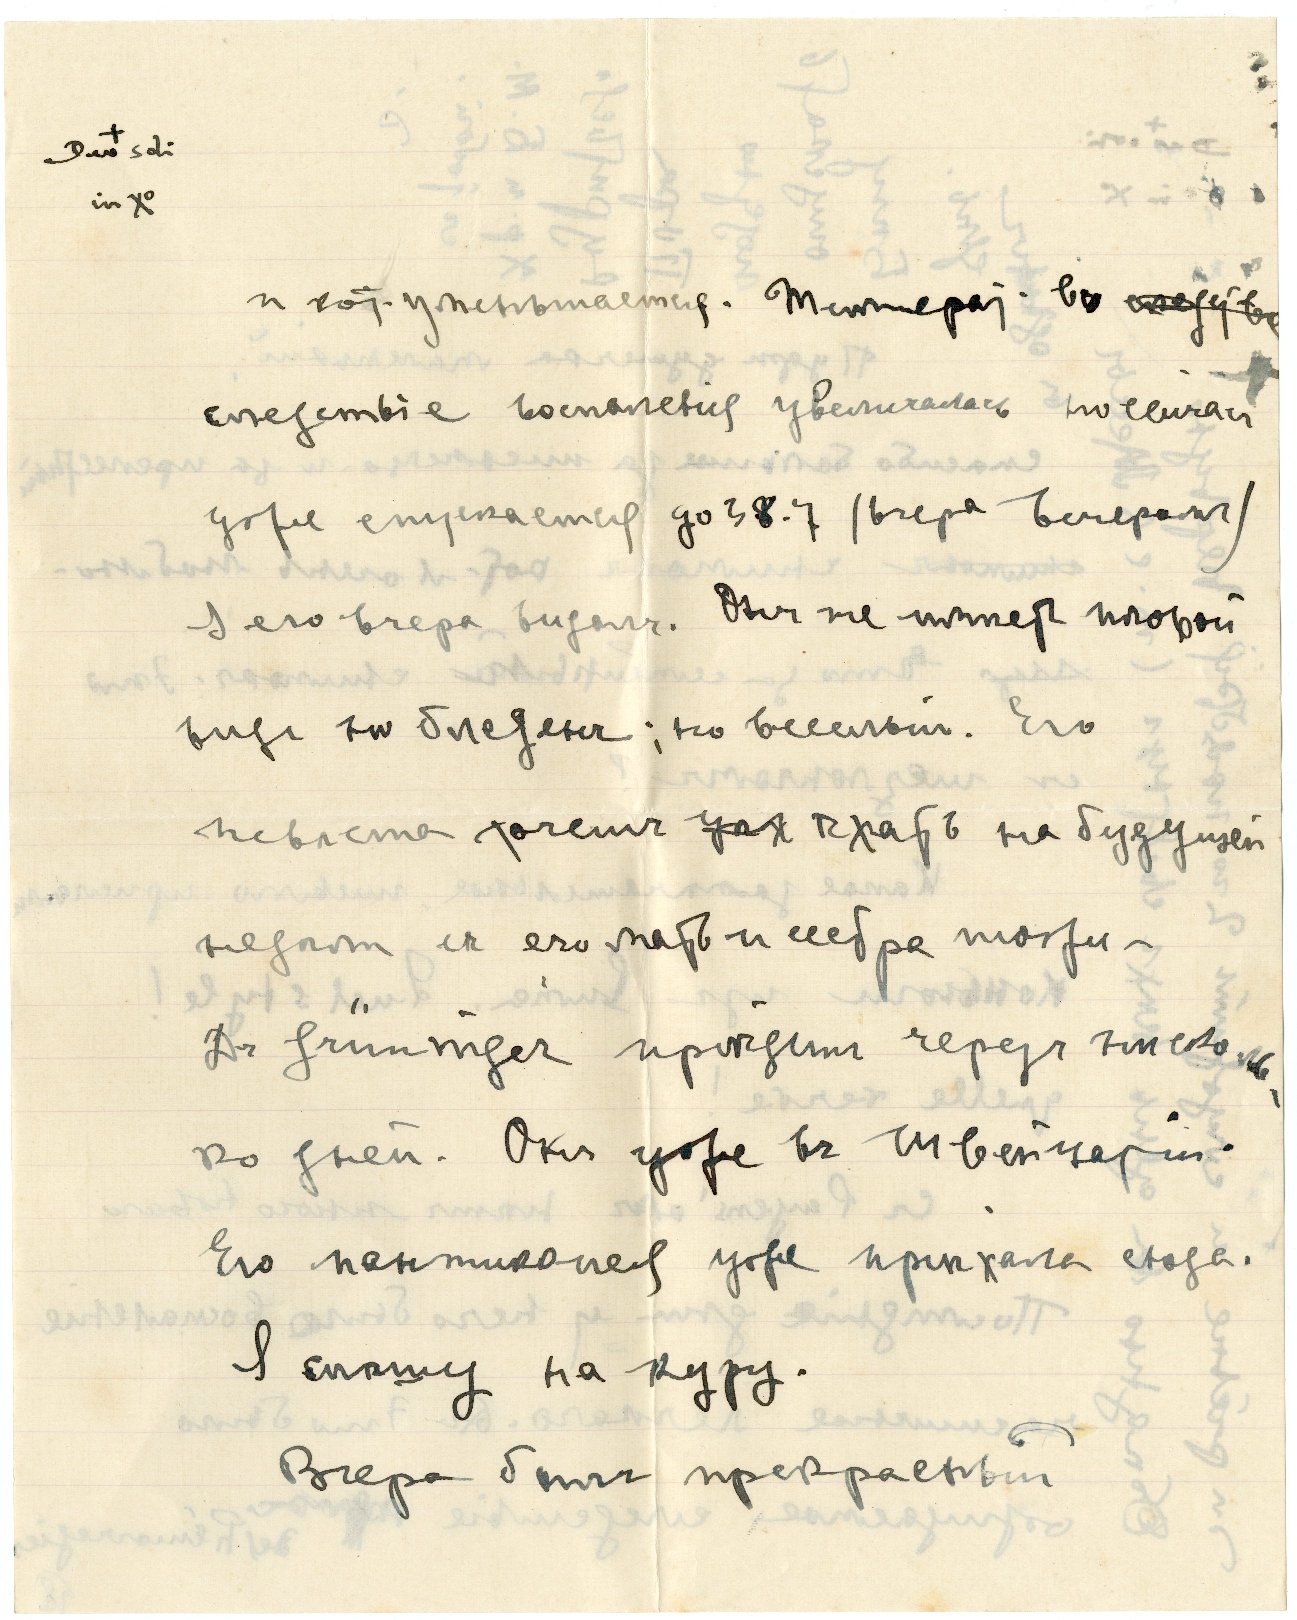 Deo soli
in Xo
и кот. уменьшается. Температ. во
следствіе воспаленія увеличалась но сейчас
уже спускается до 38.7 (вчера вечеромъ)
Я его вчера видалъ. Онъ не имѣетъ плохой
видъ но блѣденъ; но веселый. Его
невѣста хочетъ ѣхать на будущей
недѣлѣ съ его мать и сестра тоже.
Dr Grüninger прійдетъ черезъ нѣсколь-
ко дней. Онъ уже въ Швейцаріи.
Его уже пріѣхала сюда.
Я на куру.
Вчера былъ прекрасный